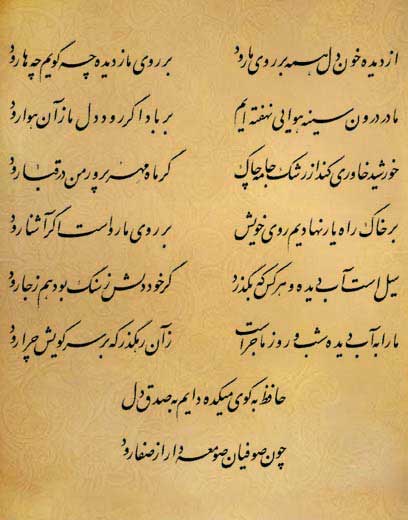 از دیده خون دل همه بر روی ما رود بر روی ما ز دیده چه گویم چه ها رود
ما در درون سینه هوایی نهفته ایم بر باد اگر رود دل ما زآن هوا رود
خورشید خاوری کند از رشک جامه چاک گر ماه مهر پرور من در قبا رود
بر خاک راه یار نهادیم روی خویش بر روی ما رواست اگر آشنا رود
سیل است آب دیده و هر کس که بگذرد گر خود دلش ز سنگ بود هم ز جا رود
ما را به آب دیده شب و روز ماجراست زآن رهگذر که بر سر کویش چرا رود
حافظ به کوی میکده دایم به صدق دل
چون صوفیان صومعه دار از صفا رود